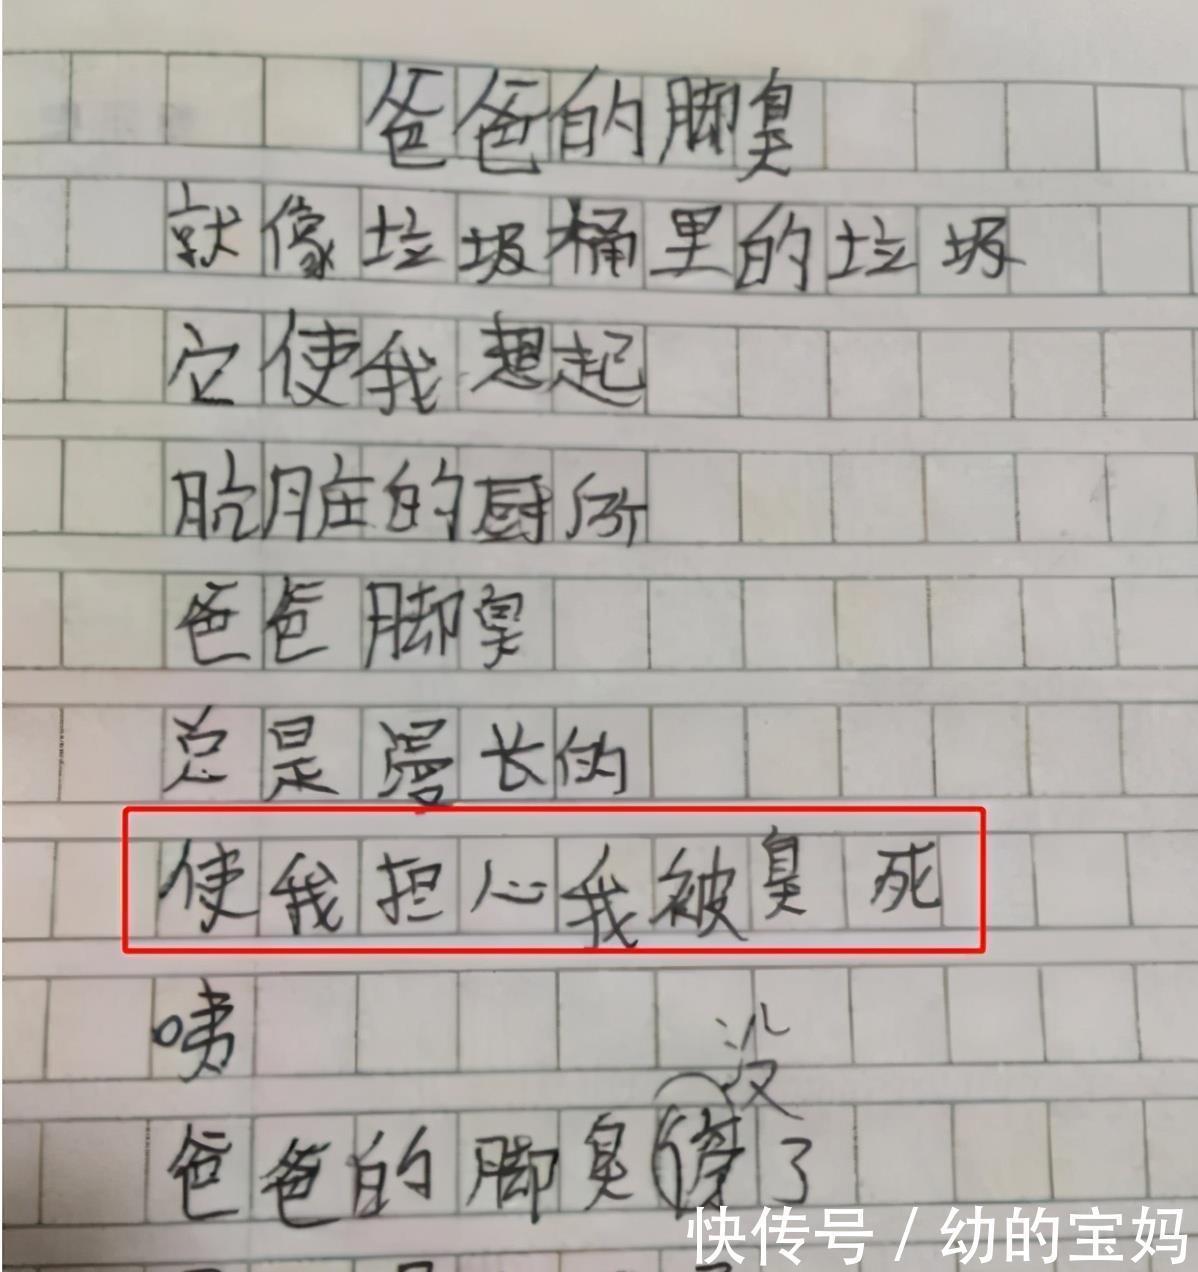 爸爸的脚臭
就像垃圾桶里的垃圾
它使我想起
肮脏的厨所
爸爸脚臭
总是漫长的
使我担心我被臭死
咦
没
爸爸的脚臭停了
快传号 / 幼的宝妈